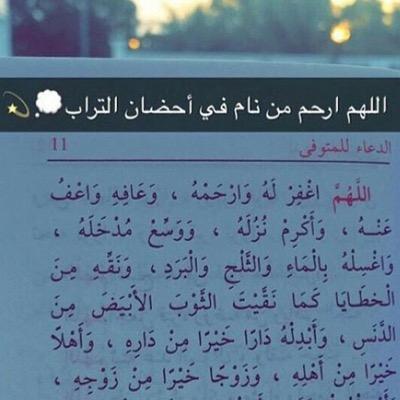 اللهم ارحم من نام في أحضان التراب
الدعاء للمتوفى 11
اللَّهُمَّ اغْفِرْ لَهُ وَارْحَمْهُ ، وَعَافِهِ وَاعْفُ
عَنْهُ ، وَأَكْرِمْ نُزُلَهُ ، وَوَسِّعْ مُدْخَلَهُ ،
وَاغْسِلْهُ بِالْمَاءِ وَالثَّلْجِ وَالْبَرَدِ ، وَنَقِّهِ مِنَ
الْخَطَايَا كَمَا نَقَّيْتَ الثَّوْبَ الأَبْيَضَ مِنَ
الدَّنَسِ ، وَأَبْدِلْهُ دَارًا خَيْرًا مِنْ دَارِهِ ، وَأَهْلًا
خَيْرًا مِنْ أَهْلِهِ ، وَزَوْجًا خَيْرًا مِنْ زَوْجِهِ ،